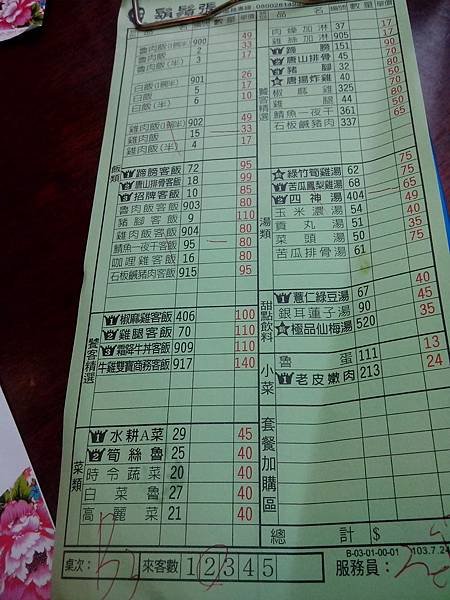 鬍鬚張
0800281
品名 編號 數量 單價
魯肉飯(1碗半) 900 49
魯肉飯 2 33
魯肉飯(半) 3 17
白飯(1碗半) 901 26
白飯 5 17
白飯(半) 6 10
雞肉飯(1碗半) 902 49
雞肉飯 15 33
雞肉飯(半) 4 17
飯類
蹄膀客飯 72 95
唐山排骨客飯 18 99
招牌客飯 10 85
魯肉飯客飯 903 80
豬腳客飯 9 110
雞肉飯客飯 904 80
鯖魚一夜干客飯 905 95
咖哩雞客飯 16 80
石板鹹豬肉客飯 915 95
饕客精選
椒麻雞客飯 406 100
雞腿客飯 70 110
霜降牛丼客飯 909 110
牛雞雙寶商務客飯 917 140
菜類
水耕A菜 29 45
筍絲魯 25 40
時令蔬菜 20 40
白菜魯 27 40
高麗菜 21 40
肉燥加淋 37 17
雞絲加淋 905 17
饕客精選
蹄膀 151 90
唐山排骨 45 70
豬腳 32 80
唐揚炸雞 40 50
椒麻雞 325 80
雞腿 44 80
鯖魚一夜干 361 50
石板鹹豬肉 337 65
湯類
綠竹筍雞湯 62 75
苦瓜鳳梨雞湯 68 75
四神湯 404 65
玉米濃湯 54 49
貢丸湯 51 35
菜頭湯 50 35
苦瓜排骨湯 61 75
甜點飲料
薏仁綠豆湯 67 40
銀耳蓮子湯 90 45
極品仙梅湯 520 35
小菜
魯蛋 111 13
老皮嫩肉 213 24
套餐加購區
總計 $
B-03-01-00-01 103.7.24
桌次: 來客數 1 2 3 4 5 服務員: